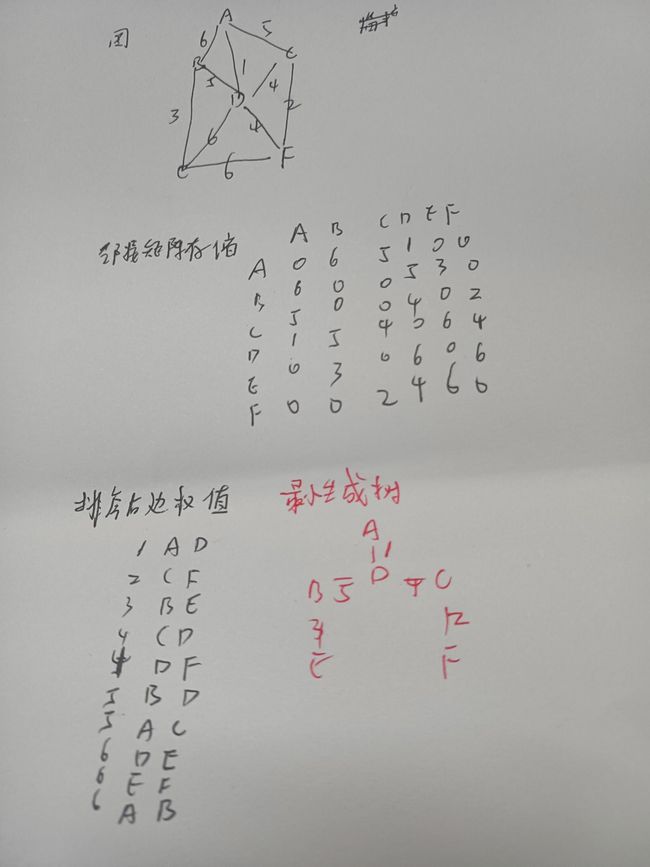 图
A
6
5
B
C
5
1
4
D
3
2
6
4
C
6
F
邻接矩阵存储
A B C D E F
A 0 6 5 1 0 0
B 6 0 0 5 3 0
C 5 0 0 4 0 2
D 1 5 4 0 6 4
E 0 3 0 6 0 6
F 0 0 2 4 6 0
排序后边权值
1 A D
2 C F
3 B E
4 C D
4 D F
5 B D
5 A C
6 D E
6 E F
6 A B
最小生成树
A
1
B 5 D 4 C
3 2
E F